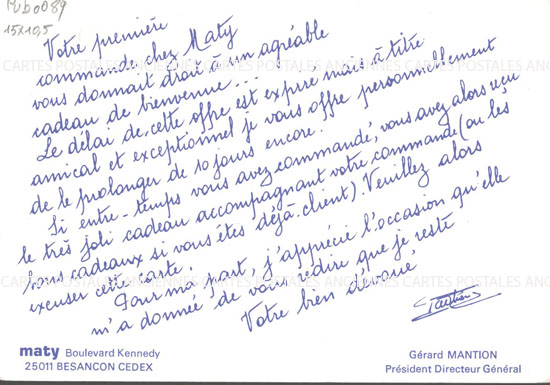 Pub0089
15x10,5
Votre première
commande chez Maty
vous donnait droit à un agréable
cadeau de bienvenue...
Le délai de cette offre est expiré mais à titre
amical et exceptionnel je vous offre personnellement
de le prolonger de 10 jours encore.
Si entre-temps vous avez commandé, vous avez alors reçu
le très joli cadeau accompagnant votre commande (ou les
bons cadeaux si vous êtes déjà client). Veuillez alors
excuser cette carte.
Pour ma part, j'apprécie l'occasion qu'elle
m'a donnée de vous redire que je reste
Votre bien dévoué
Mantion
maty Boulevard Kennedy
25011 BESANCON CEDEX
Gérard MANTION
Président Directeur Général
CARTES POSTALES ANCIENNES CARTES POSTALES ANCIENNES CARTES POSTALES
CARTES POSTALES ANCIENNES CARTES POSTALES ANCIENNES CARTES POSTALES